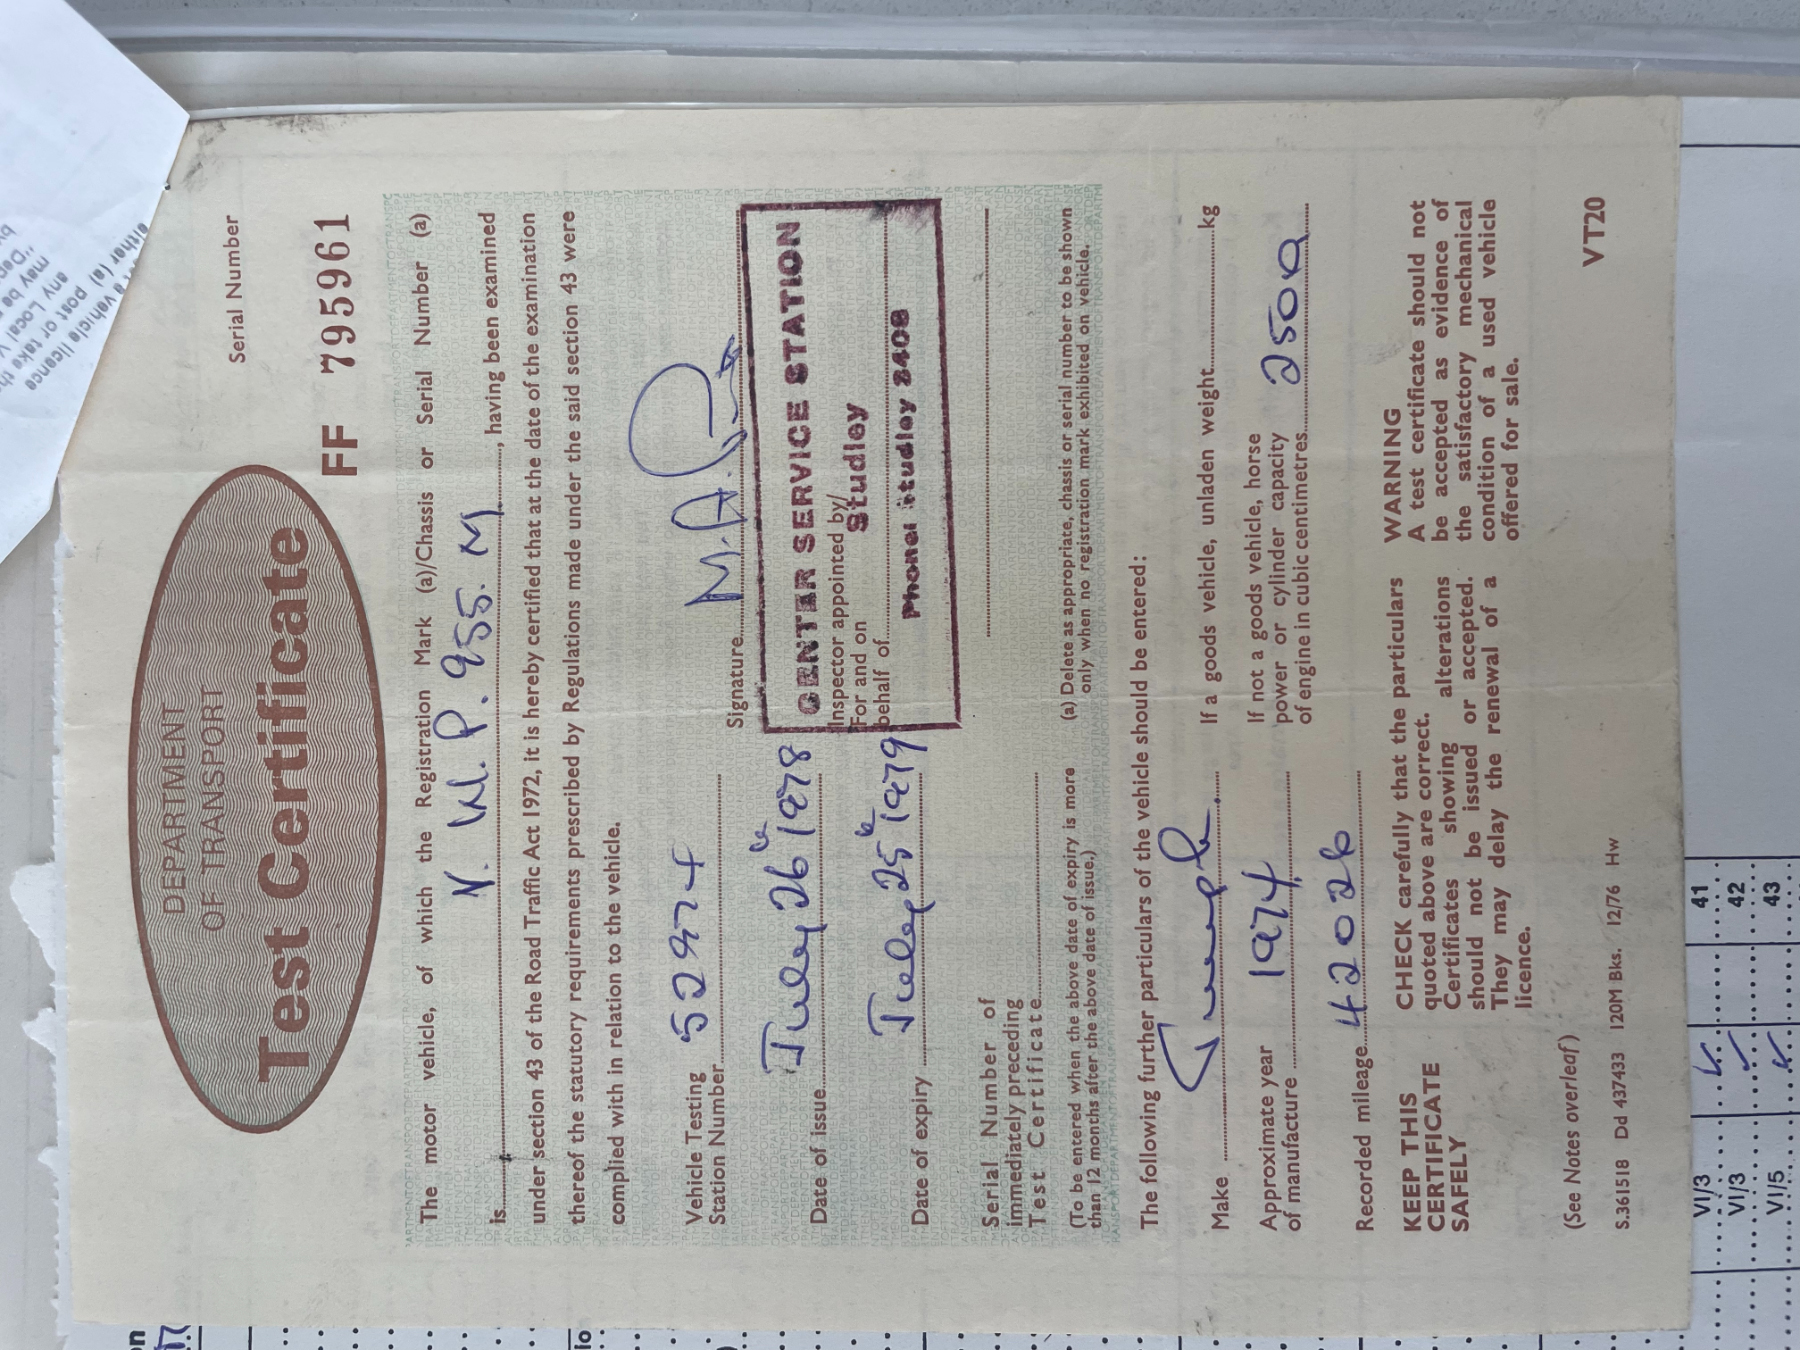 DEPARTMENT
OF TRANSPORT
Test Certificate
Serial Number
FF 795961
The motor vehicle, of which the Registration Mark (a)/Chassis or Serial Number (a)
is N. W. P. 955. M, having been examined
under section 43 of the Road Traffic Act 1972, it is hereby certified that at the date of the examination
thereof the statutory requirements prescribed by Regulations made under the said section 43 were
complied with in relation to the vehicle.
Vehicle Testing
Station Number 52974
Signature M.A.
Date of issue July 26th 1978
CENTER SERVICE STATION
Inspector appointed by/
For and on
Studley
behalf of
Phone: Studley 2408
Date of expiry July 25th 1979
Serial Number of
immediately preceding
Test Certificate
(To be entered when the above date of expiry is more
than 12 months after the above date of issue.)
(a) Delete as appropriate, chassis or serial number to be shown
only when no registration mark exhibited on vehicle.
The following further particulars of the vehicle should be entered:
Make Triumph
If a goods vehicle, unladen weight kg
Approximate year
of manufacture 1974
If not a goods vehicle, horse
power or cylinder capacity
of engine in cubic centimetres 2500
Recorded mileage 42026
KEEP THIS
CERTIFICATE
SAFELY
CHECK carefully that the particulars
quoted above are correct.
Certificates showing alterations
should not be issued or accepted.
They may delay the renewal of a
licence.
WARNING
A test certificate should not
be accepted as evidence of
the satisfactory mechanical
condition of a used vehicle
offered for sale.
(See Notes overleaf)
S.361518 Dd 437433 120M Bks. 12/76 Hw
VT20
VI/3 41
VI/3 42
VI/5 43
vehicle licence
either (a) post or take
any Local
may be